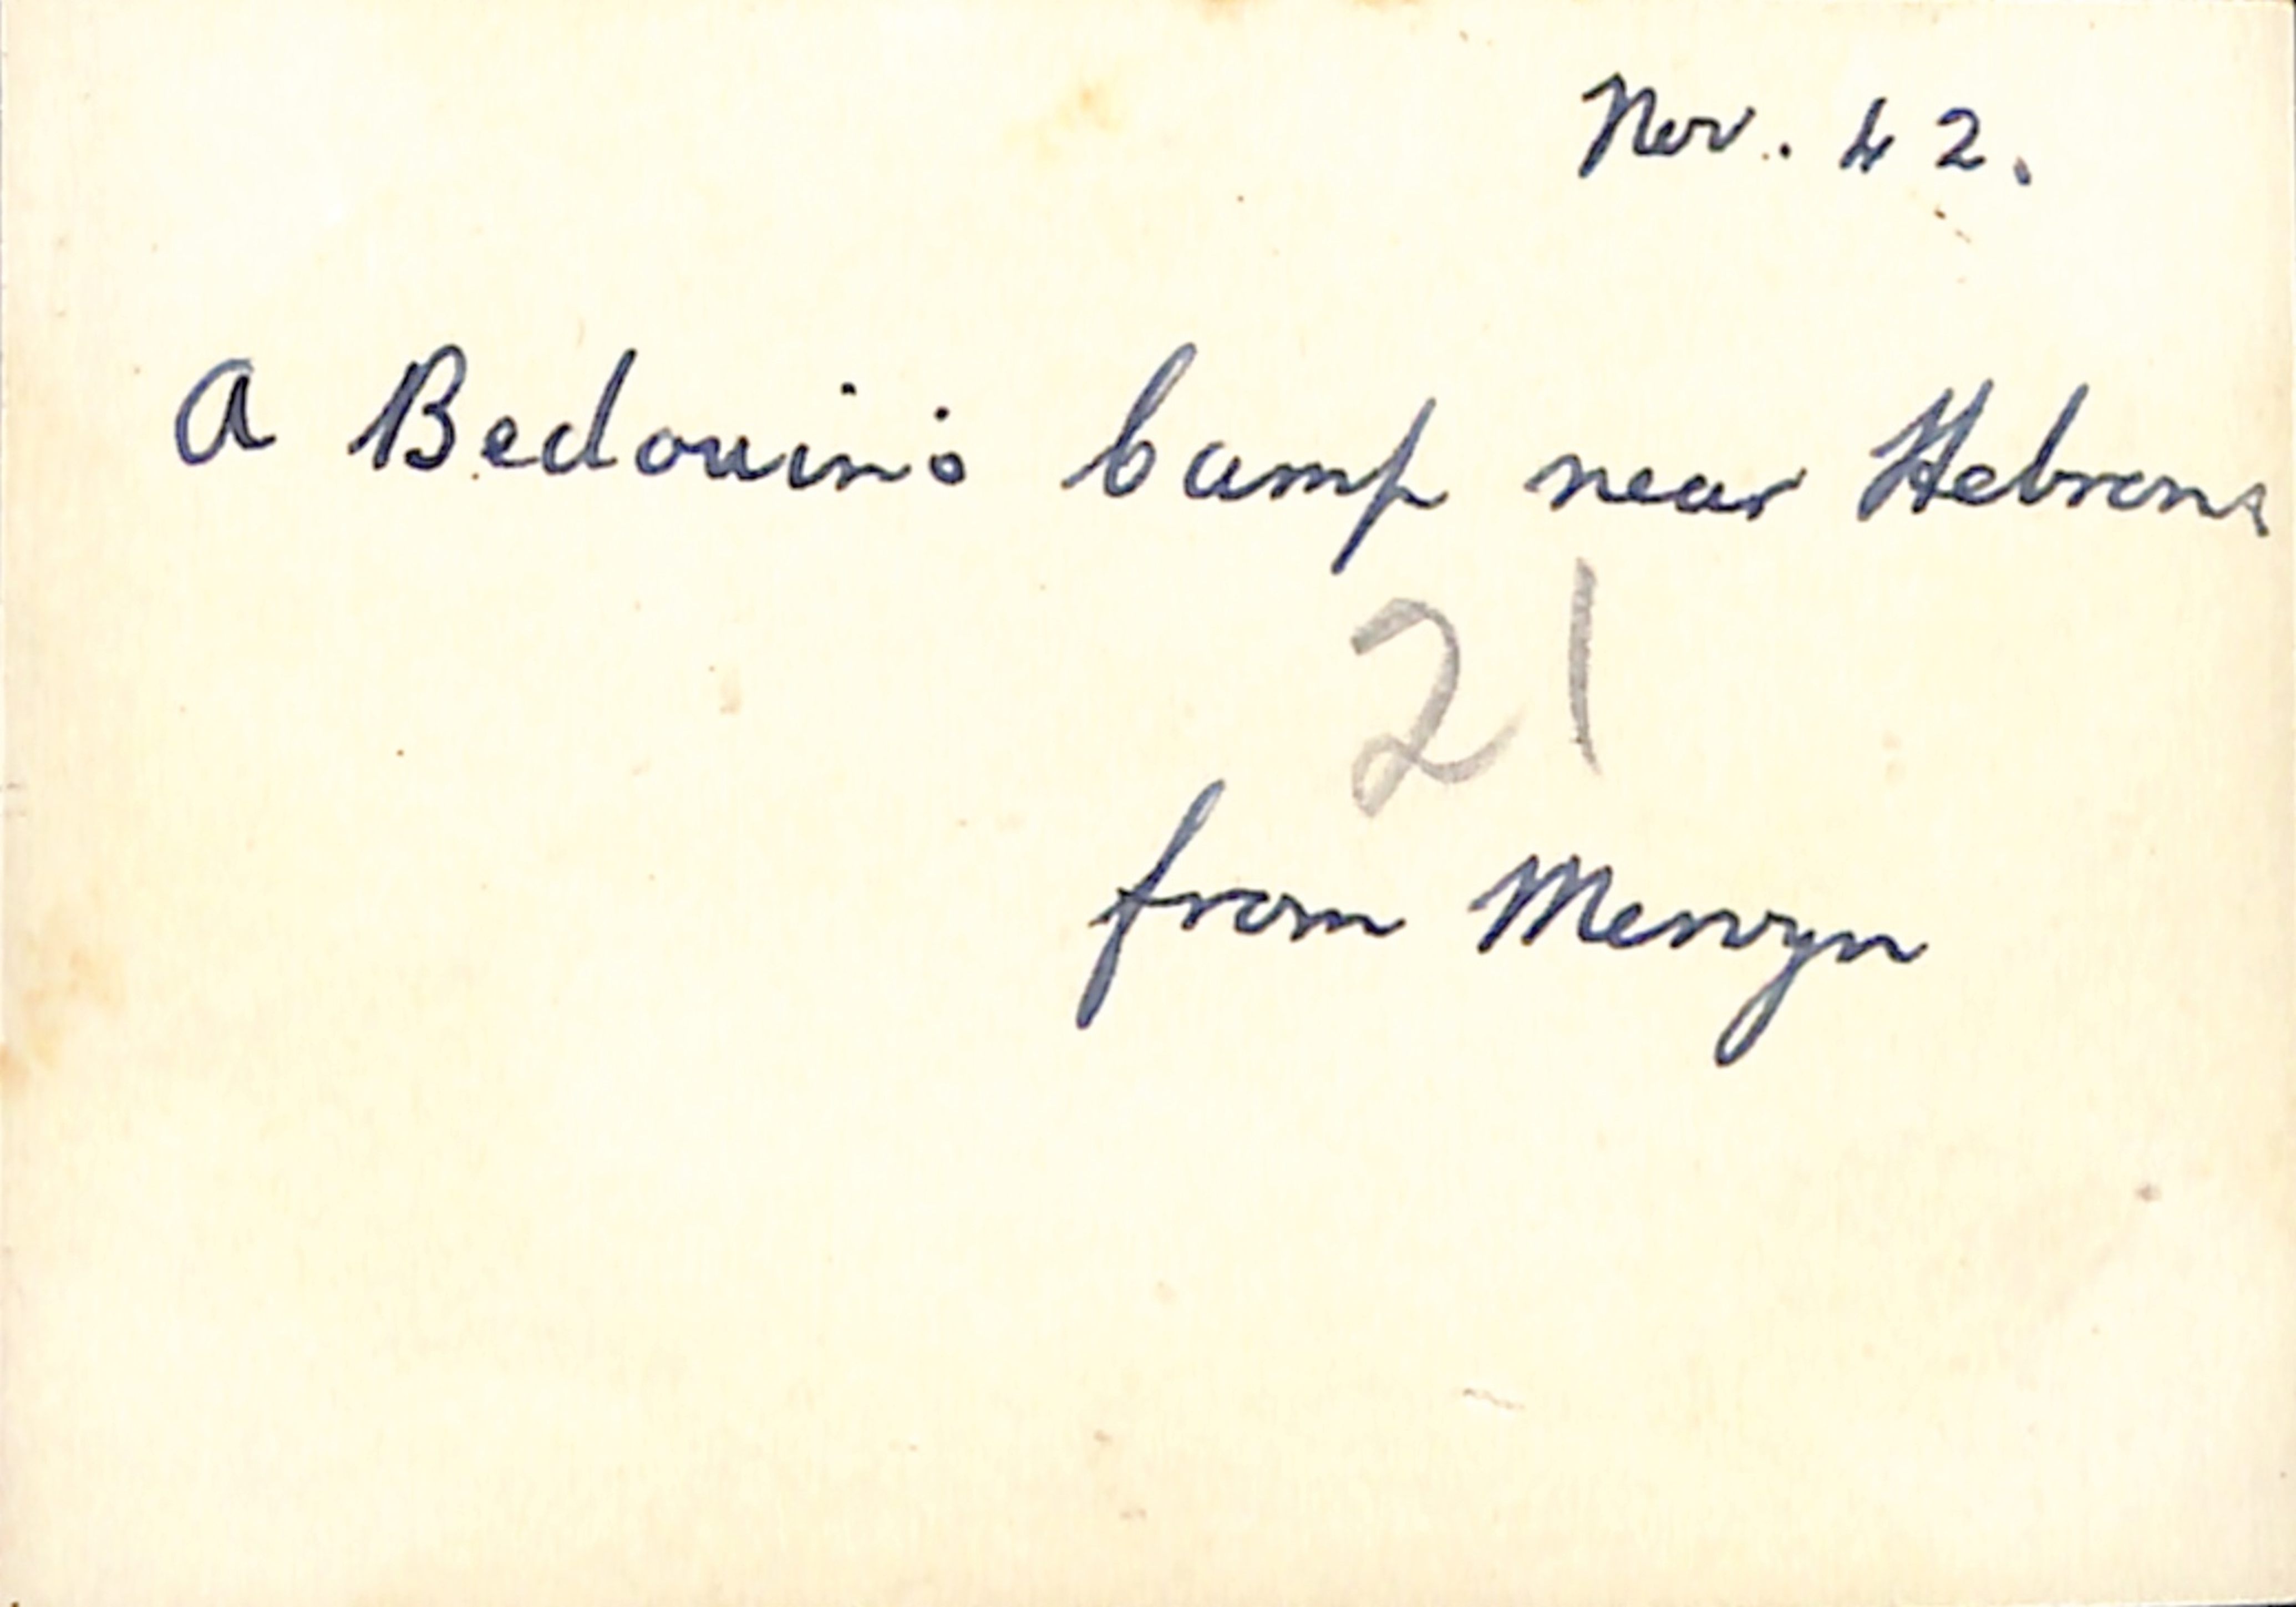 Nov. 42.
A Bedouin's Camp near Hebron.
21
from Mervyn